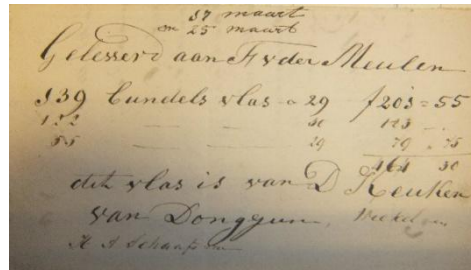 17 maart
en 25 maart
Gelesserd aan F v der Meulen
139 bundels vlas a 29 f 203 = 55
122 — — 30 183 — -
55 — — 29 79 = 75
30
dit vlas is van D Keuken
van Dongjum,